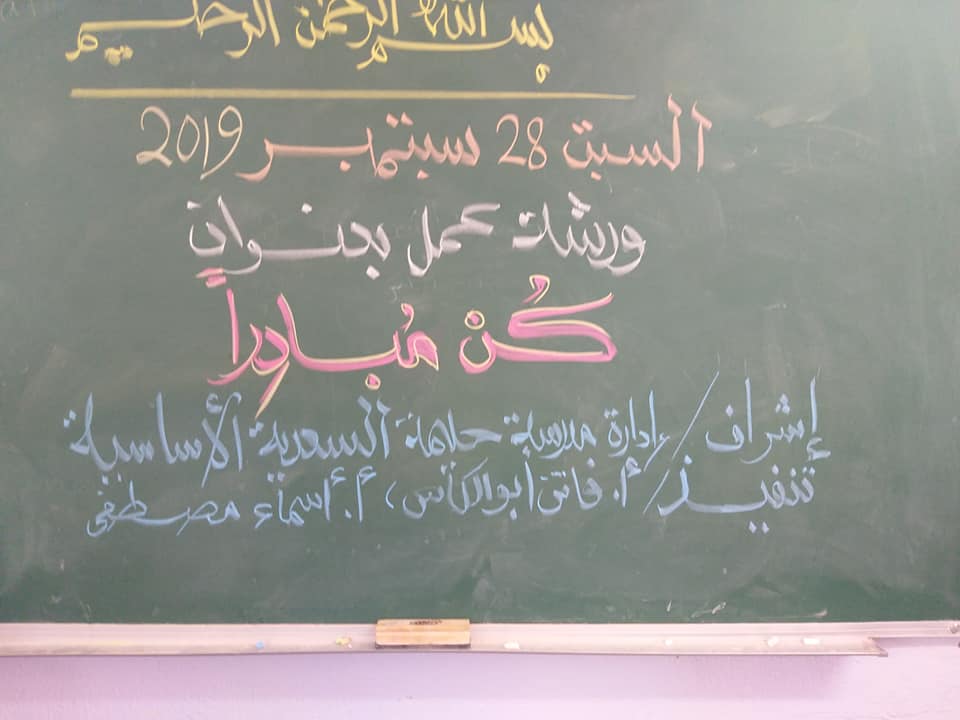 بسم الله الرحمن الرحيم
السبت 28 سبتمبر 2019
ورشة عمل بعنوان
كُنْ مُبادراً
إشراف / إدارة مدرسة حليمة السعدية الأساسية
تنفيذ / أ. فاتن أبو الكاس، أ. أسماء مصطفى